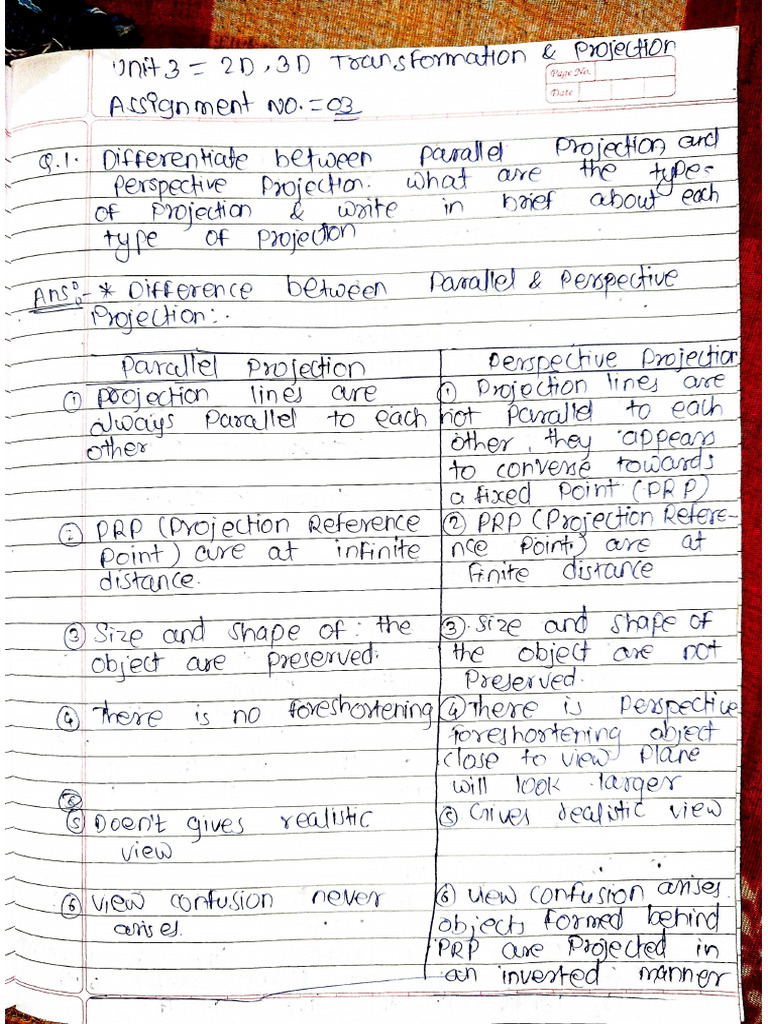 Unit 3 = 2D, 3D Transformation & Projection
Page No.
Date
Assignment NO. = 03
Q.1. Differentiate between Parallel Projection and
Perspective Projection. What are the type-
of Projection & write in brief about each
type of Projection
Ans:- * Difference between Parallel & Perspective
Projection:.
Parallel Projection
① Projection lines are
always Parallel to each
other
② PRP (Projection Reference
Point) are at infinite
distance.
③ Size and shape of the
object are preserved.
④ There is no foreshortening
⑤
⑤ Doen't gives realistic
view
⑥ View confusion never
arises.
Perspective Projection
① Projection lines are
not Parallel to each
other, they appears
to converse towards
a fixed Point (PRP)
② PRP (Projection Refere-
nce Point) are at
finite distance
③ Size and shape of
the object are not
Preserved.
④ There is Perspective
foreshortening object
close to view Plane
will look larger
⑤ Gives realistic view
⑥ view confusion arises.
objects formed behind
PRP are Projected in
an inverted manner